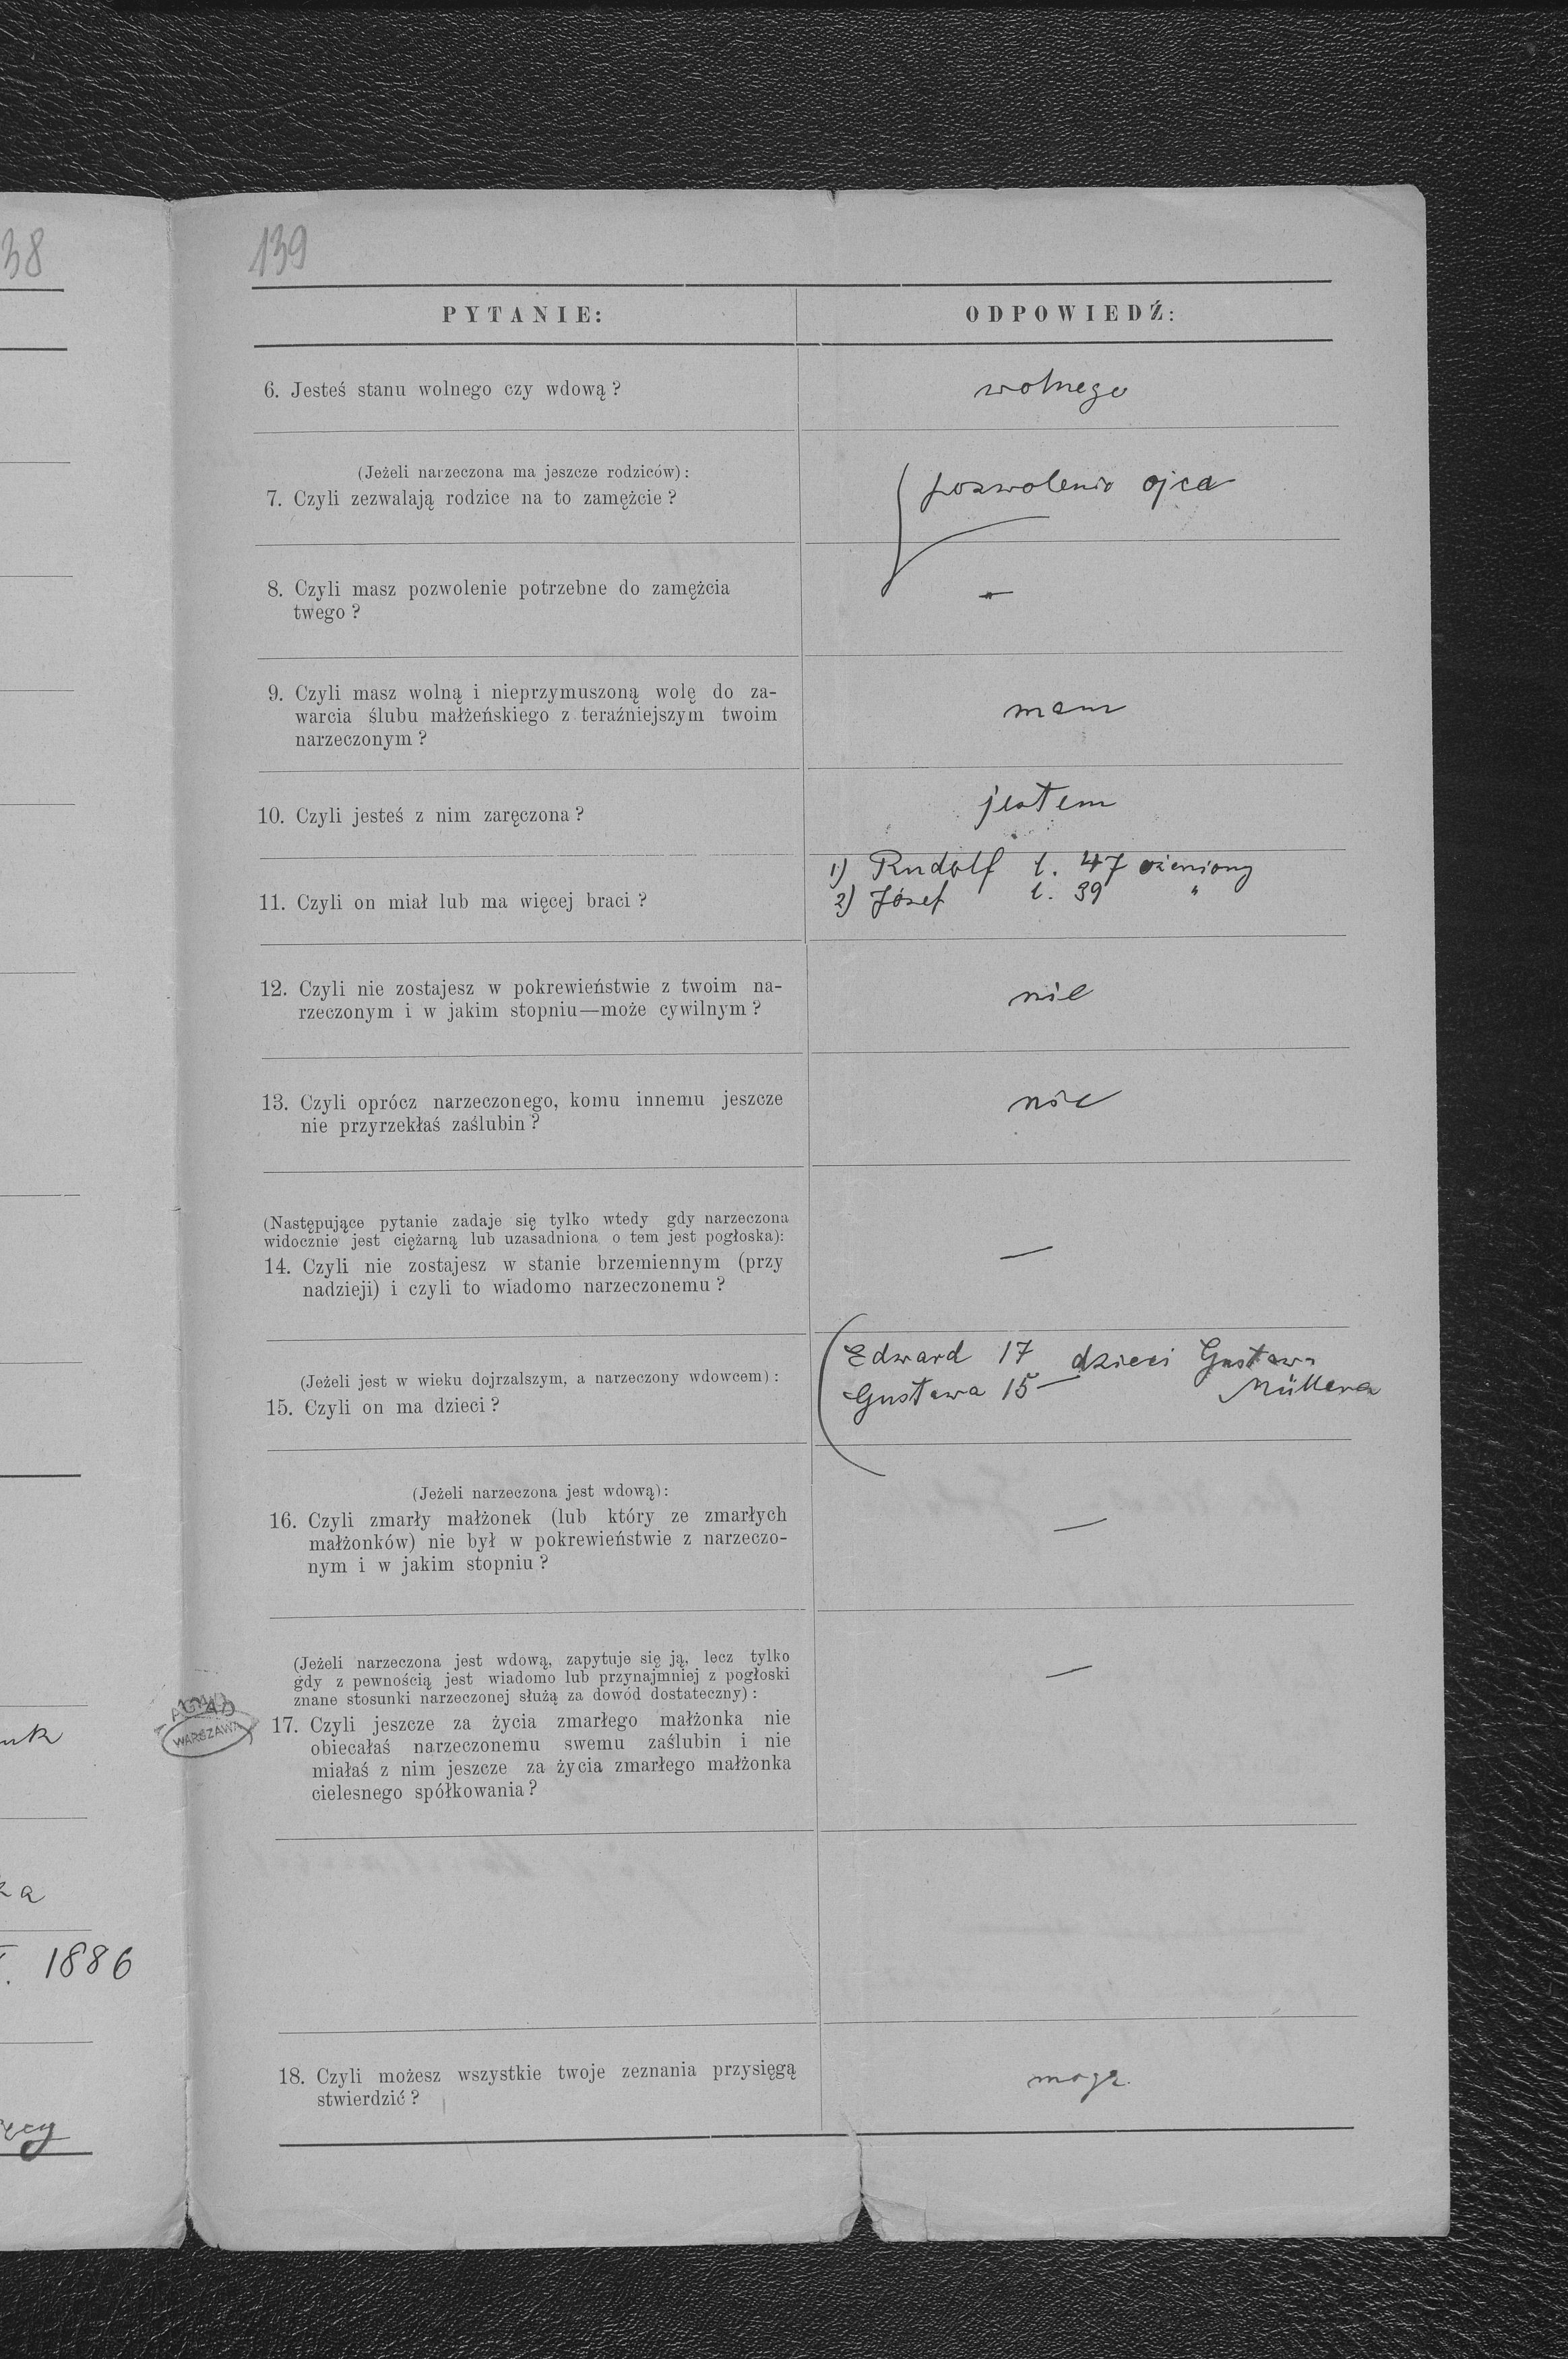 38
139
PYTANIE:
ODPOWIEDŹ:
6. Jesteś stanu wolnego czy wdową?
wolnego
(Jeżeli narzeczona ma jeszcze rodziców):
7. Czyli zezwalają rodzice na to zamężcie?
pozwolenie ojca
8. Czyli masz pozwolenie potrzebne do zamężcia
twego?
—
9. Czyli masz wolną i nieprzymuszoną wolę do za-
warcia ślubu małżeńskiego z teraźniejszym twoim
narzeczonym?
mam
10. Czyli jesteś z nim zaręczona?
jestem
11. Czyli on miał lub ma więcej braci?
1) Rudolf l. 47 ożeniony
2) Józef l. 39 "
12. Czyli nie zostajesz w pokrewieństwie z twoim na-
rzeczonym i w jakim stopniu—może cywilnym?
nie
13. Czyli oprócz narzeczonego, komu innemu jeszcze
nie przyrzekłaś zaślubin?
nie
(Następujące pytanie zadaje się tylko wtedy gdy narzeczona
widocznie jest ciężarną lub uzasadniona o tem jest pogłoska):
14. Czyli nie zostajesz w stanie brzemiennym (przy
nadzieji) i czyli to wiadomo narzeczonemu?
—
(Jeżeli jest w wieku dojrzalszym, a narzeczony wdowcem):
15. Czyli on ma dzieci?
Edward 17 dzieci Gustawa
Gustawa 15 — Müllera
(Jeżeli narzeczona jest wdową):
16. Czyli zmarły małżonek (lub który ze zmarłych
małżonków) nie był w pokrewieństwie z narzeczo-
nym i w jakim stopniu?
—
(Jeżeli narzeczona jest wdową, zapytuje się ją, lecz tylko
gdy z pewnością jest wiadomo lub przynajmniej z pogłoski
znane stosunki narzeczonej służą za dowód dostateczny):
17. Czyli jeszcze za życia zmarłego małżonka nie
obiecałaś narzeczonemu swemu zaślubin i nie
miałaś z nim jeszcze za życia zmarłego małżonka
cielesnego spółkowania?
—
AGAD
WARSZAWA
1886
18. Czyli możesz wszystkie twoje zeznania przysięgą
stwierdzić?
mogę.